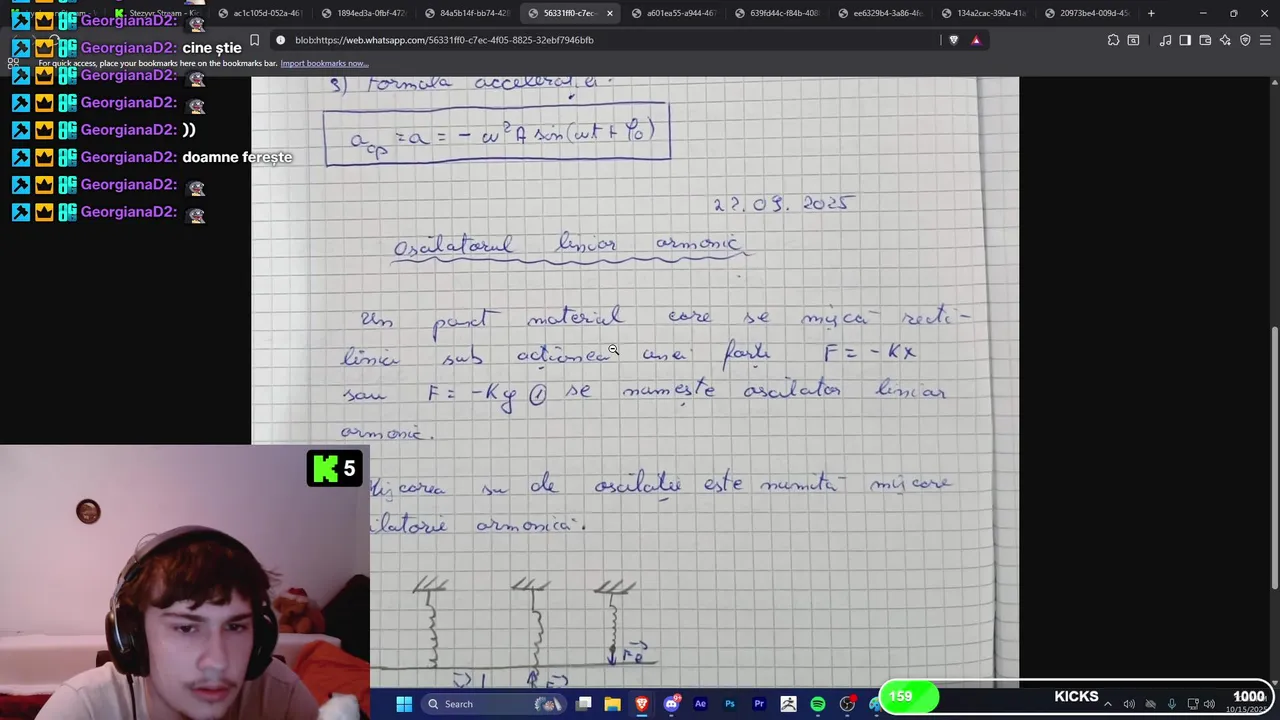 GeorgianaD2:
GeorgianaD2: cine știe
GeorgianaD2:
GeorgianaD2:
GeorgianaD2: ))
GeorgianaD2: doamne ferește
GeorgianaD2:
GeorgianaD2:
ac1c105d-052a-46
1894ed3a-0fbf-472
56331ff0-c7ec
a601ea55-a944-4
134a2cac-390a-41a
20973be4-009d-45
blob:https://web.whatsapp.com/56331ff0-c7ec-4f05-8825-32ebf7946bfb
For quick access, place your bookmarks here on the bookmarks bar. Import bookmarks now...
3) Formula accelerației:
a_cp = a = - ω² A sin(ωt + φ0)
22.09.2025
Oscilatorul liniar armonic
Un punct material care se mișcă recti-
liniu sub acțiunea unei forțe F = -Kx
sau F = -Ky ① se numește oscilator liniar
armonic.
Mișcarea sa de oscilație este numită mișcare
oscilatorie armonică.
Fe
K 5
159 KICKS 1000
Search
10/15/2025